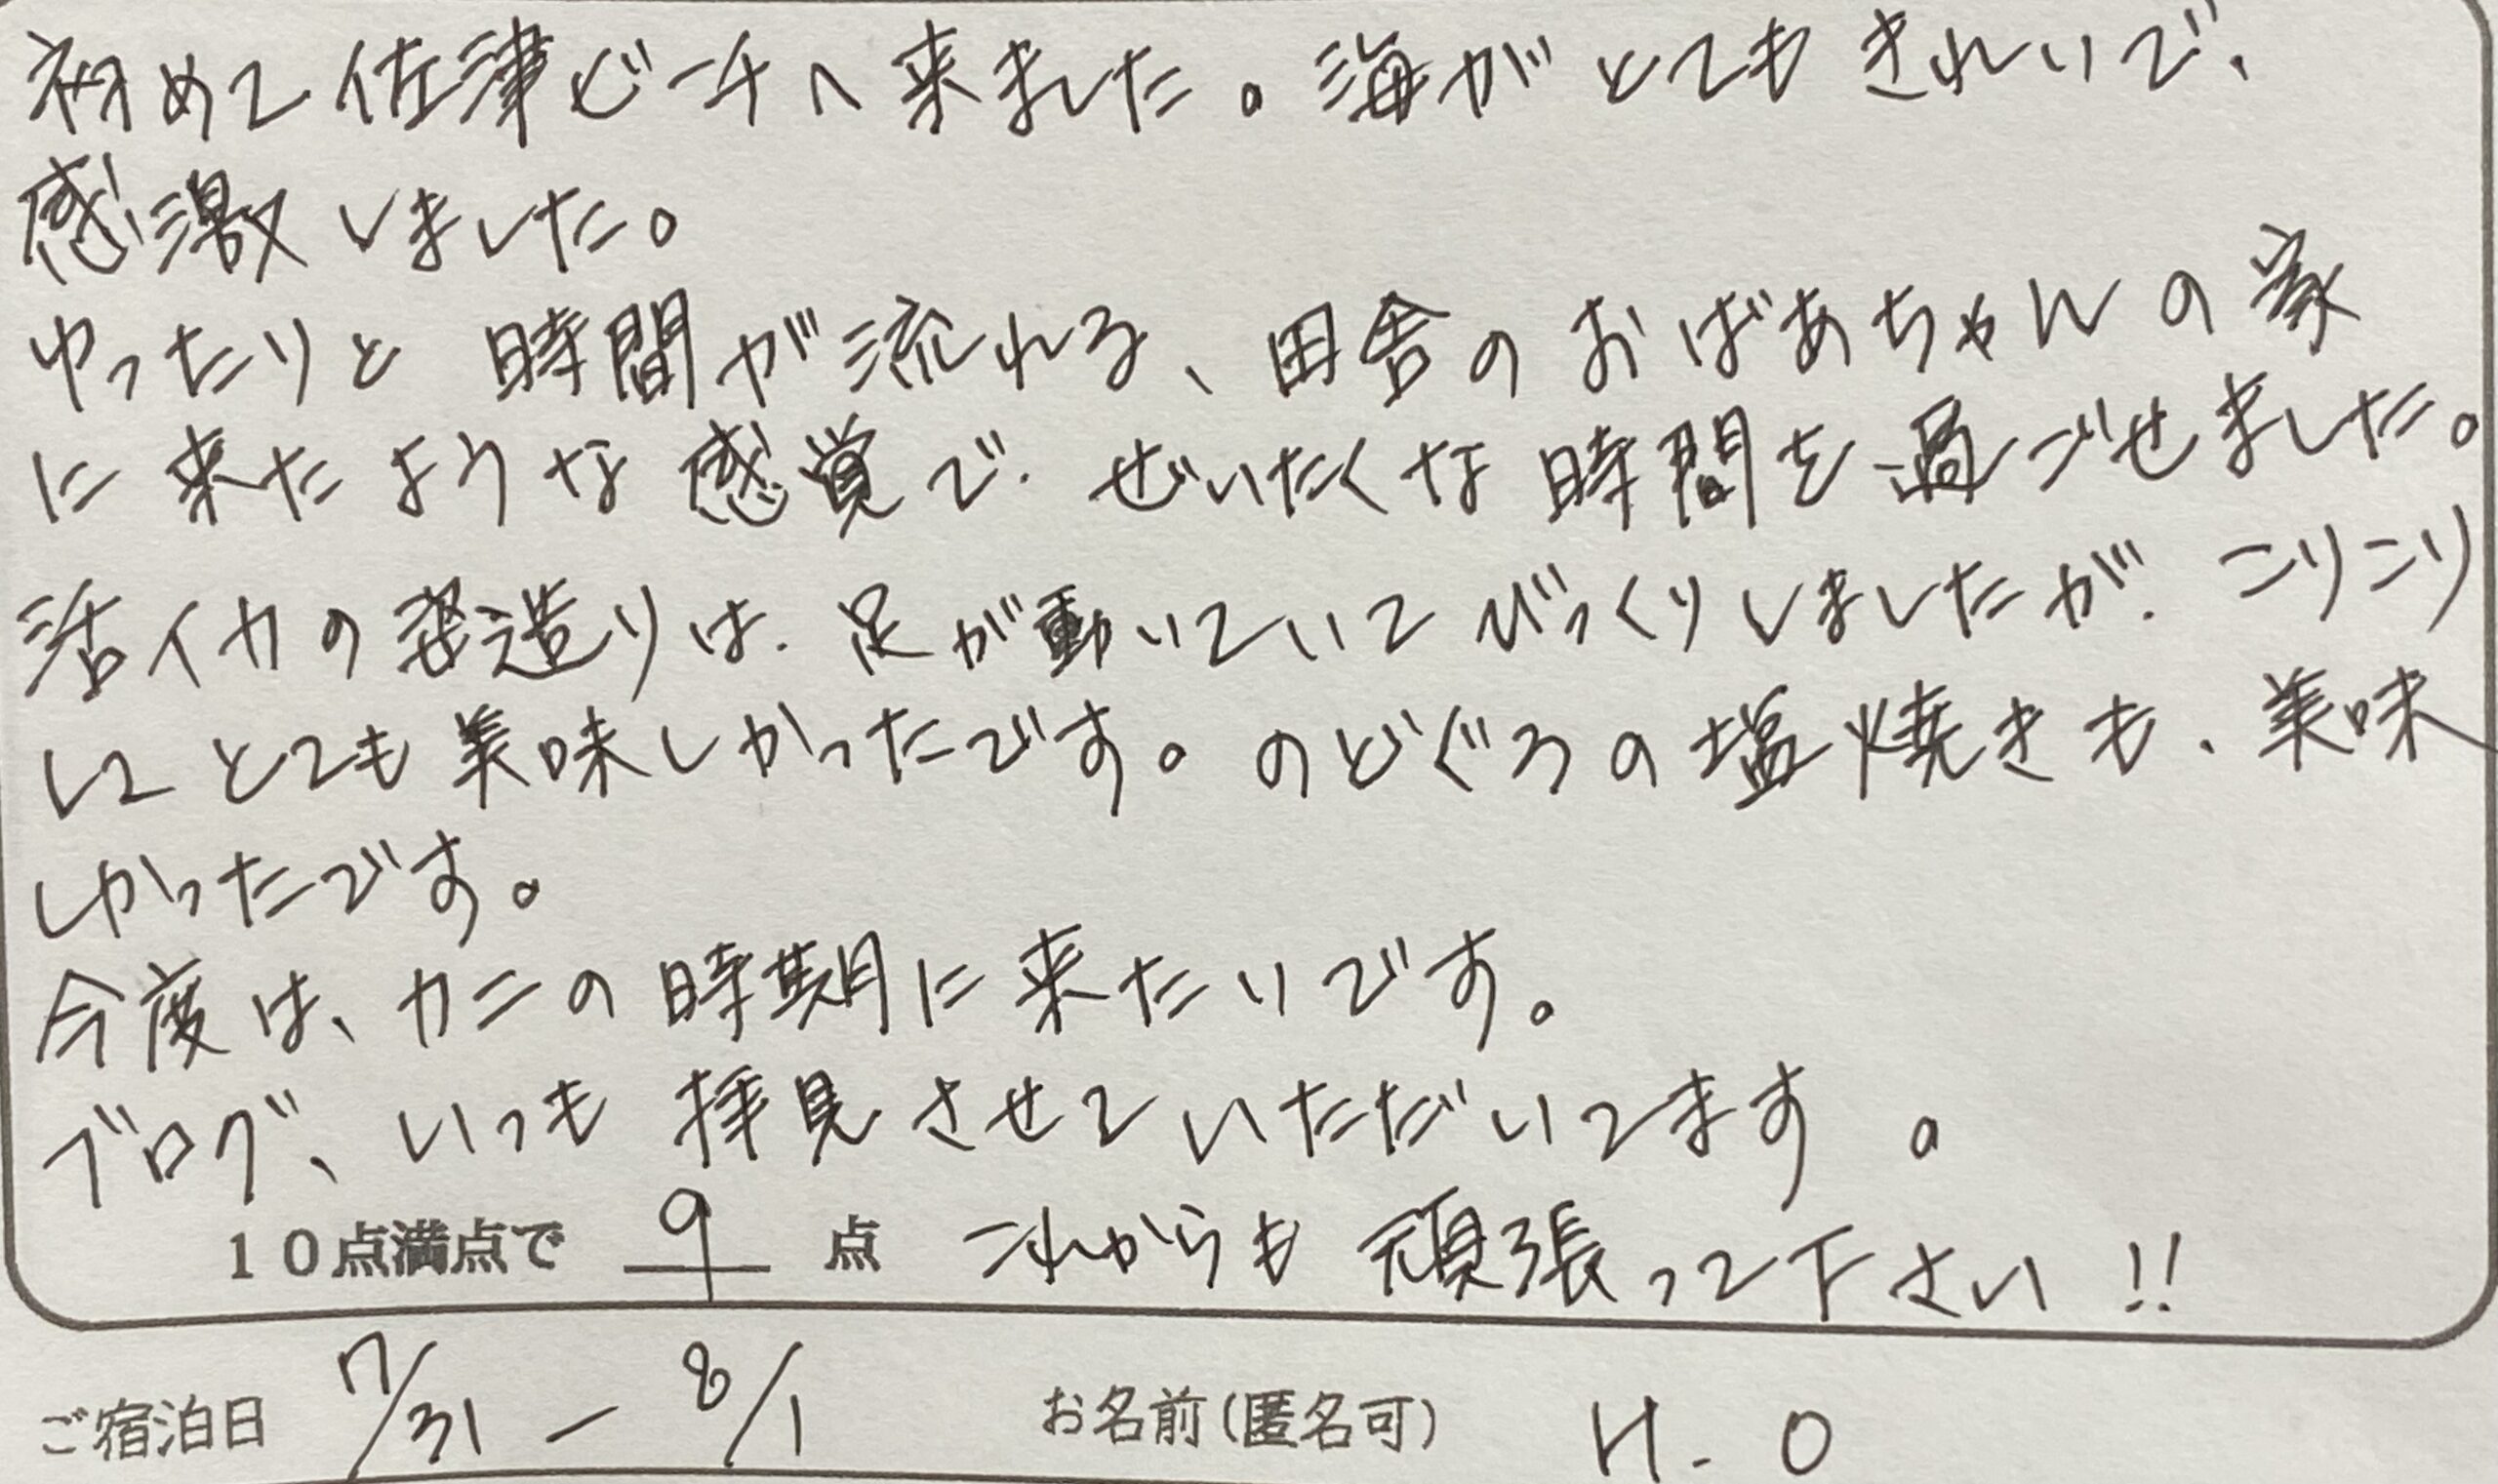 初めて佐津ビーチへ来ました。海がとてもきれいで、
感激しました。
ゆったりと時間が流れる、田舎のおばあちゃんの家
に来たような感覚で、ぜいたくな時間を過ごせました。
活イカの姿造りは、足が動いていてびっくりしましたが、こりこり
してとても美味しかったです。のどぐろの塩焼きも、美味
しかったです。
今度は、カニの時期に来たいです。
ブログ、いつも拝見させていただいてます。
10点満点で 9 点 これからも頑張って下さい!!
ご宿泊日 7/31 - 8/1 お名前(匿名可) H.O